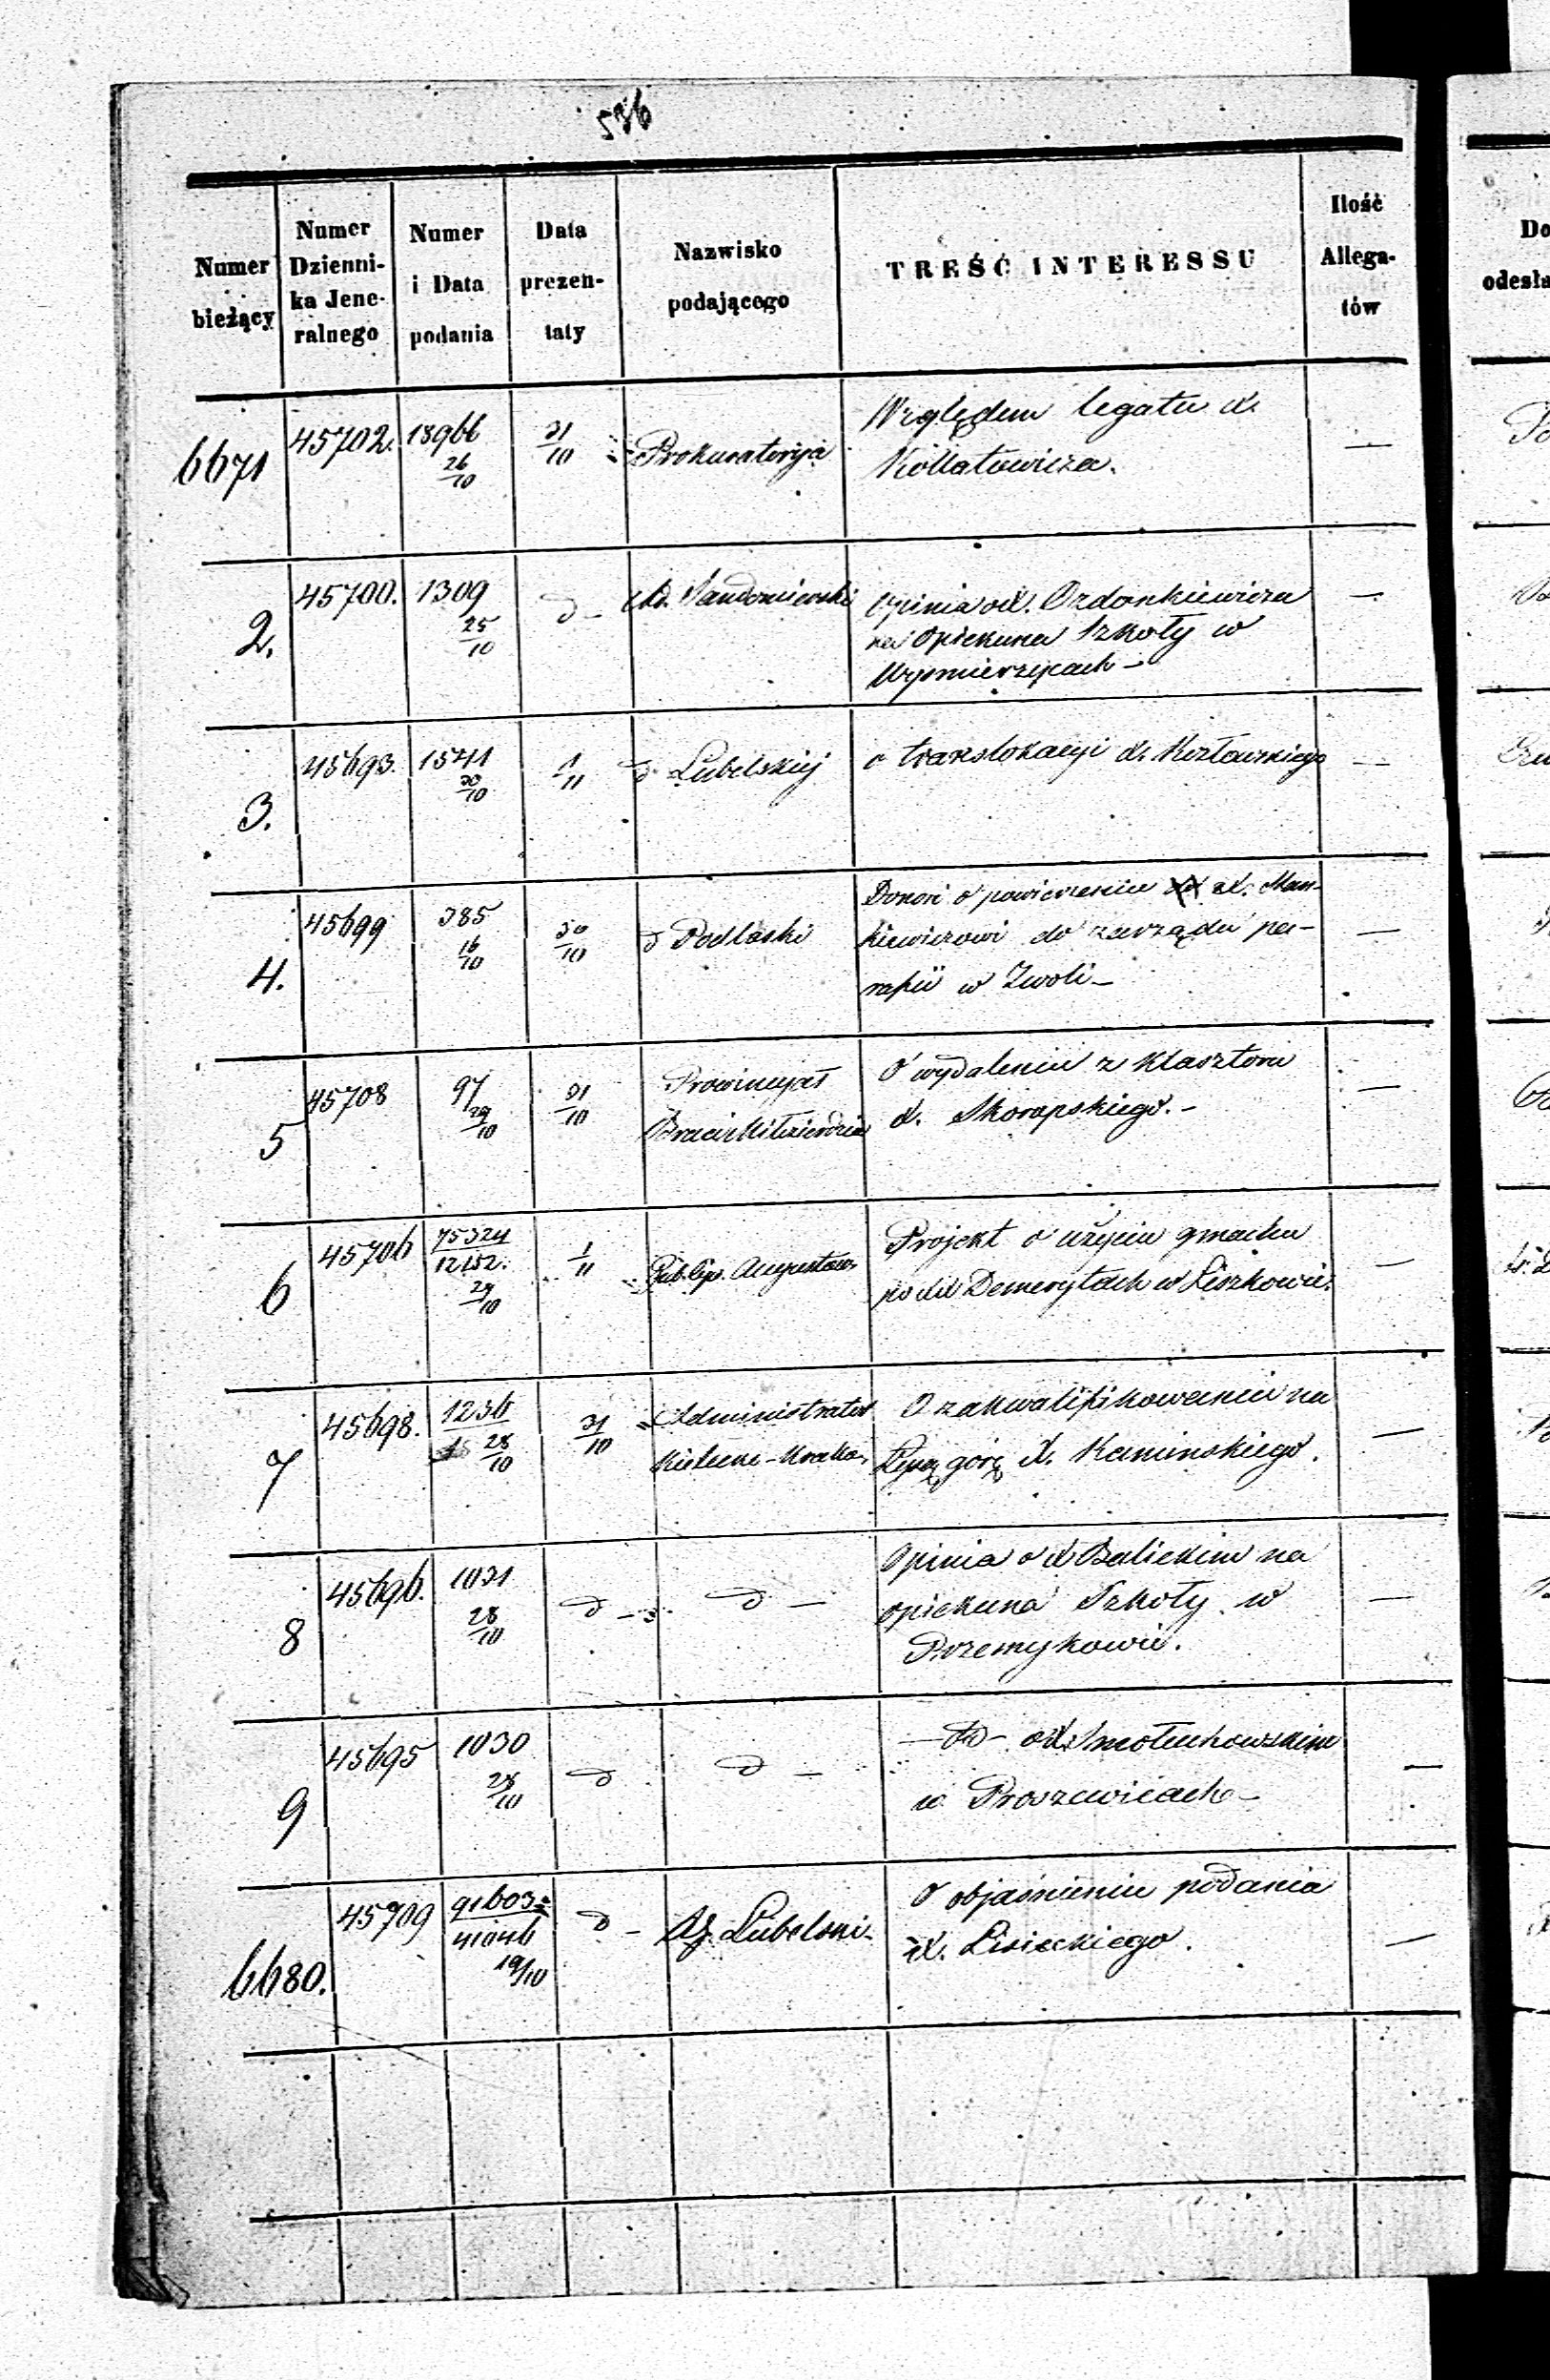 536
Numer bieżący
Numer Dzienni-ka Jene-ralnego
Numer i Data podania
Data prezen-taty
Nazwisko podającego
TREŚĆ INTERESSU
Ilość Allega-tów
Do
odesła
6671 45702. 18966 26/10 31/10 Prokuratorija Względem legatu X.
Kollatowicza. —
2. 45700. 1309 25/10 d - Ad. Sandomierski Opinia o X. Ozdonkiewiczu
na Opiekuna Szkoły w
—
3. 45693. 1541 30/10 1/11 d Lubelskiej o translokacyi X. Kozłowskiego —
4. 45699 385 16/10 30/10 d Podlaski Donosi o powierzeniu X. Man-
kiewiczowi do zarządu pa-
rafii w Zwoli - —
5 45708 97 29/10 31/10 Prowincyał O wydaleniu z Klasztoru
Braci Miłosierdzia X. Skorapskiego. - —
6 45706 75324/12152. 29/10 1/11 Augustow. Projekt o użyciu gmachu
po XX Demerytach w Liszkowie. —
7 45698. 1236 28/10 31/10 Administrator O zakwalifikowaniu na
Kielecko-Krako. Łysą górę X. Kaminskiego. —
8 45696. 1031 28/10 d - d - Opinia o X Balickim na
opiekuna Szkoły w
Przemykowie. —
9 45695 1030 28/10 d d - - d - o X. Smołuchowskim
w Proszowicach - —
6680. 45709 91603/41046 19/10 d - Lubelski - O objaśnieniu podania
X. Lisieckiego. —